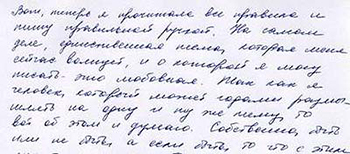 Вот, теперь я прочитала все правила и
пишу правильной ручкой. На самом
деле, единственная тема, которая меня
сейчас волнует, и о которой я могу
писать - это любовная. Так как я
человек, который может часами размы-
шлять на одну и ту же тему, то
вот об этом и думаю. Собственно, быть
или не быть, а если быть, то что с этим